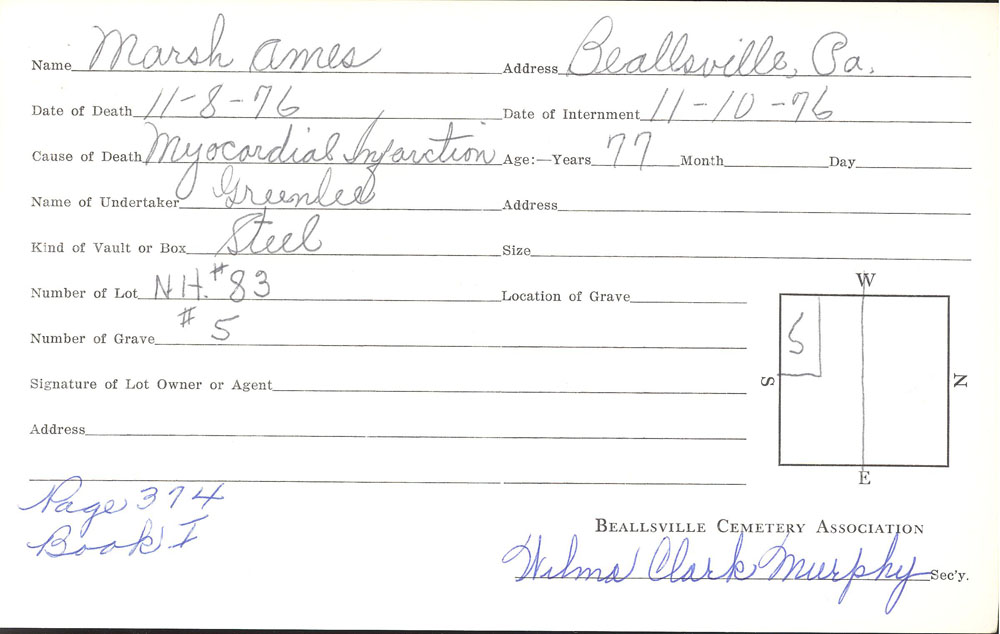 Name Marsh Ames Address Beallsville, Pa.
Date of Death 11-8-76 Date of Internment 11-10-76
Cause of Death Myocardial Infarction Age:—Years 77 Month Day
Name of Undertaker Greenlee Address
Kind of Vault or Box Steel Size
Number of Lot N.H. #83 Location of Grave
Number of Grave #5
Signature of Lot Owner or Agent
Address
W
5
S
N
E
Page 374
Book I
BEALLSVILLE CEMETERY ASSOCIATION
Wilma Clark Murphy Sec'y.